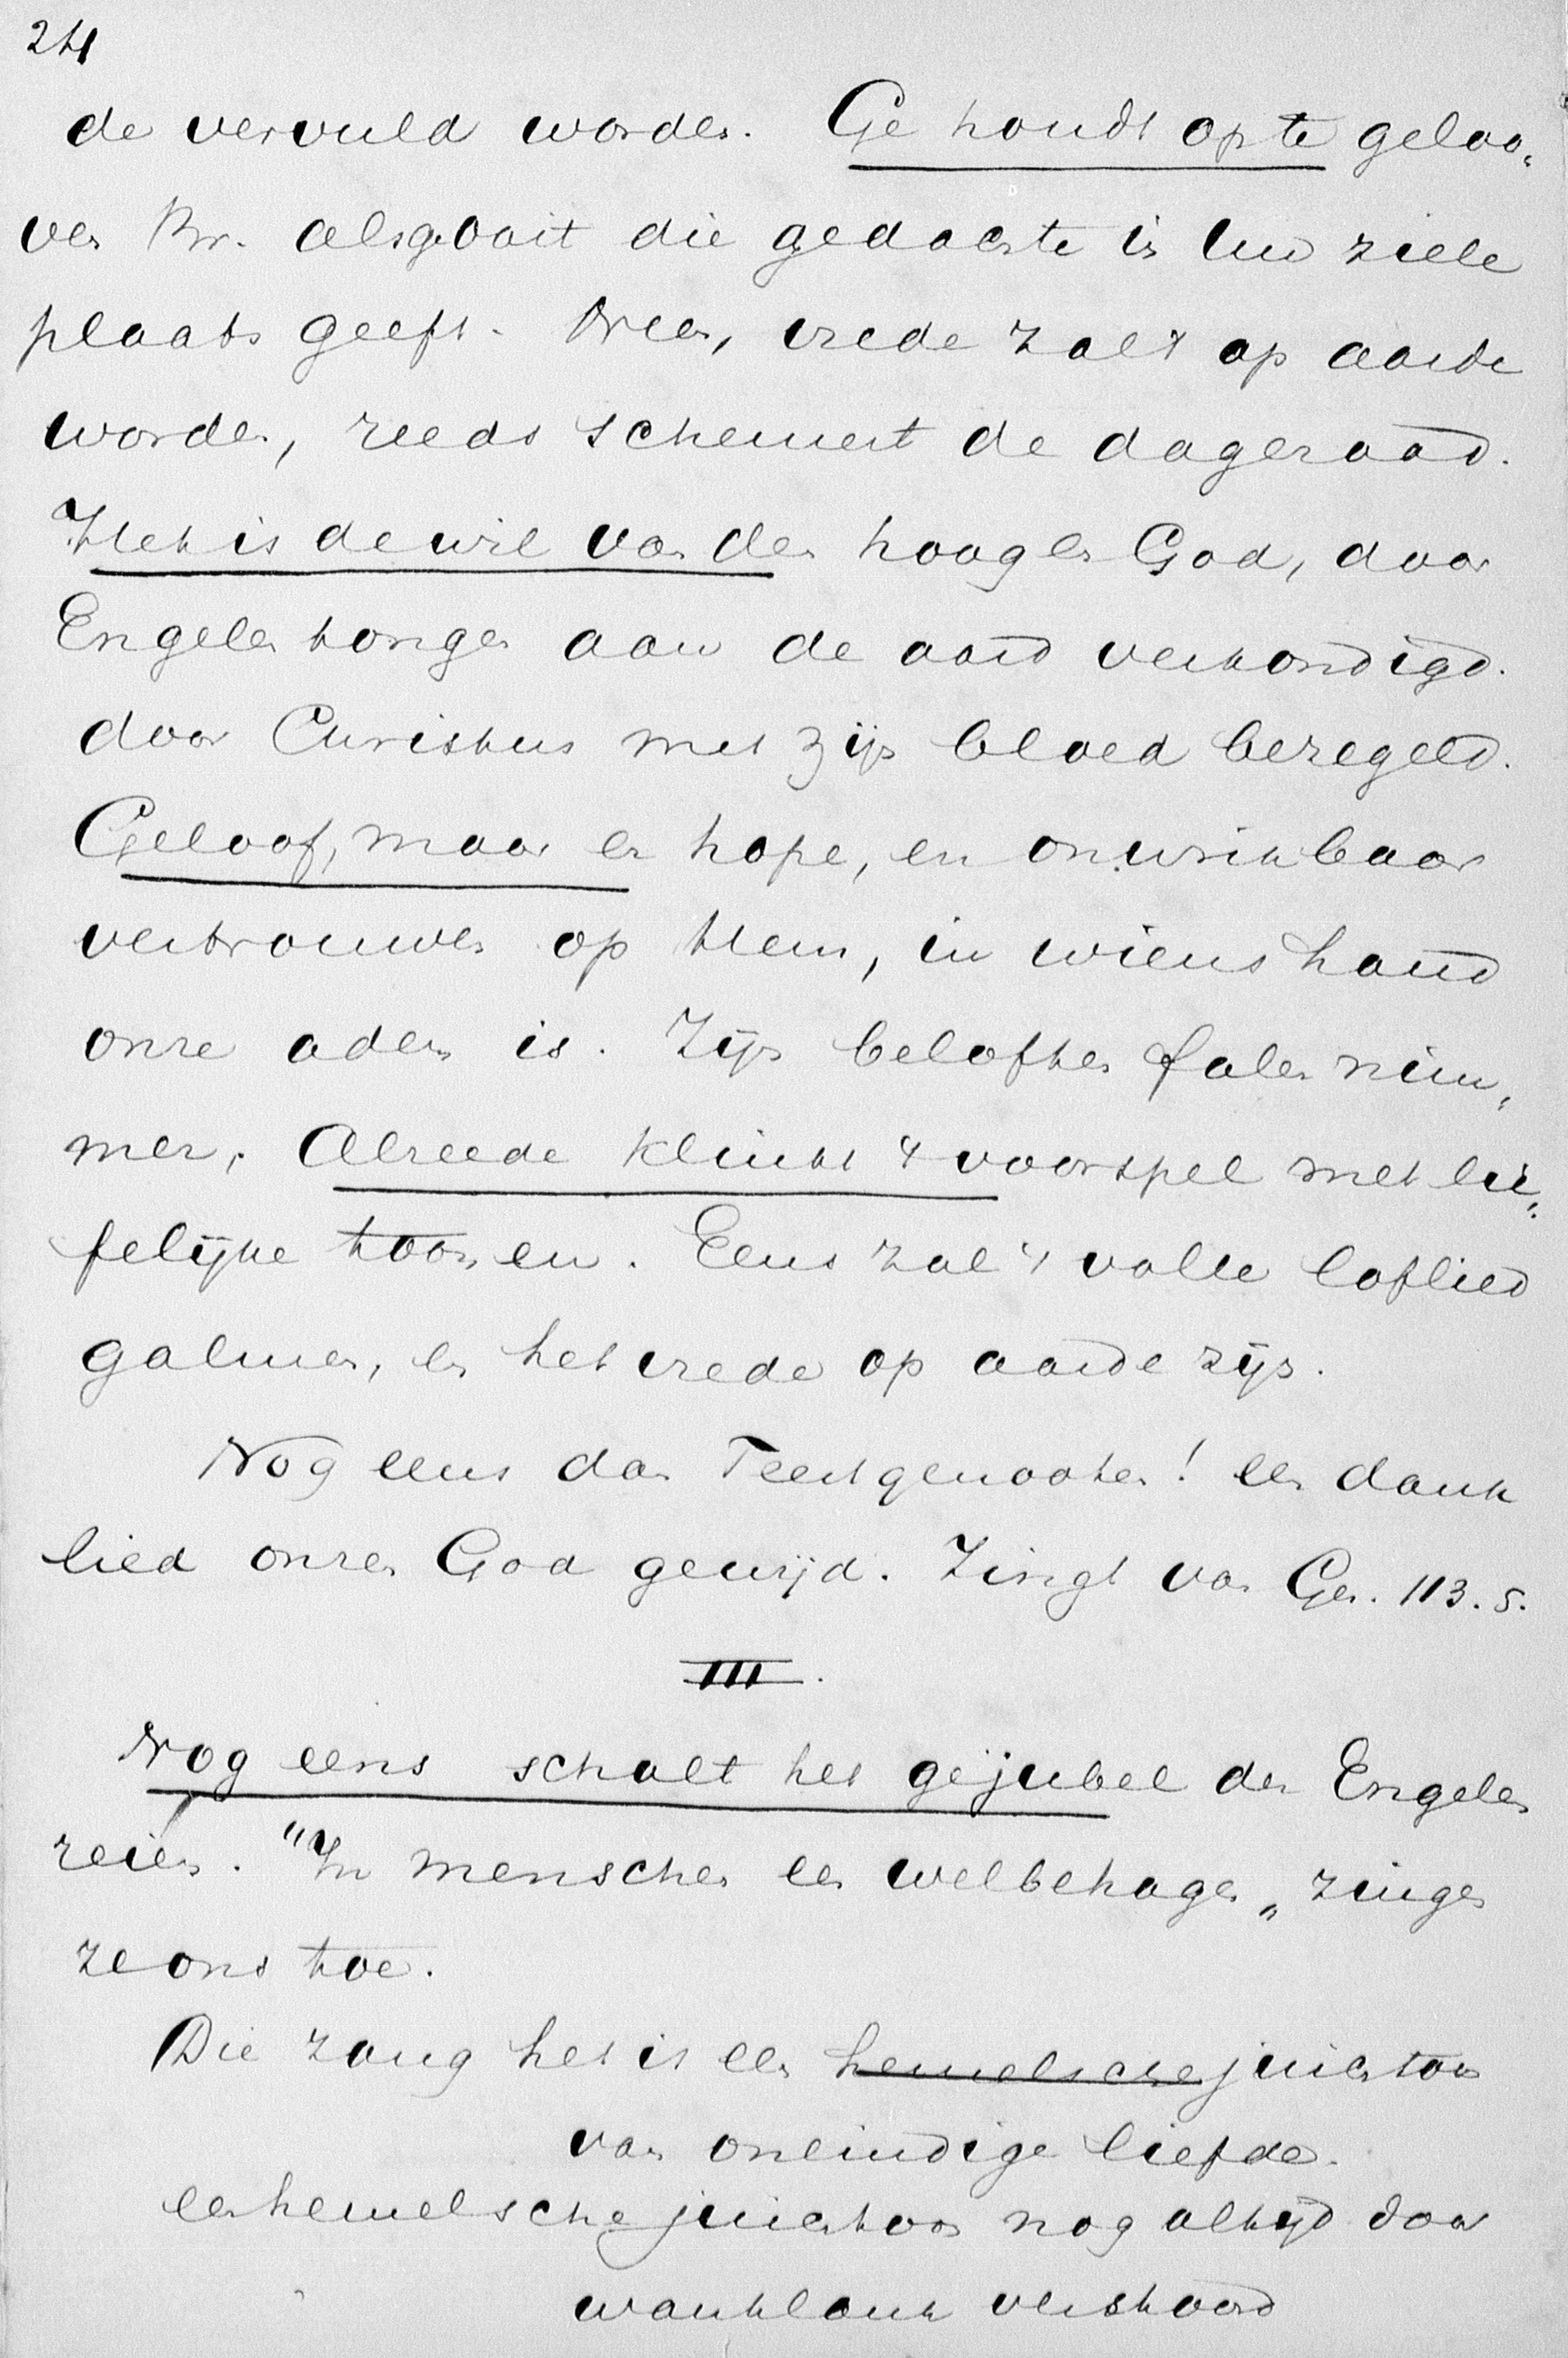 24
de vervuld worden. Ge houdt op te geloo„
ven Br. als ge ooit die gedachte in Uw ziele
plaats geeft. Neen, vrede zal 't op aarde
worden, reeds schemert de dageraad.
Het is de wil van den hoogen God, door
Engelen tongen aan de aard verkondigd.
door Christus met zijn bloed bezegeld.
Geloof, maar en hope, en onwrikbaar
vertrouwen op Hem, in wiens hand
onze adem is. Zijn beloften falen nim„
mer. Alreede klinkt 't voorspel met lie„
felijke toonen. Eens zal 't volle loflied
galmen, en het vrede op aarde zijn.
Nog eens dan Feestgenooten! een dank
lied onzen God gewijd. Zingt van Gez. 113.5.
III.
Nog eens schalt het gejubel der Engelen
reien. "In menschen een welbehagen„ zingen
ze ons toe.
Die zang het is een hemelsche juichtoon
van oneindige liefde.
een hemelsche juichtoon nog altijd door
wanklank verstoord